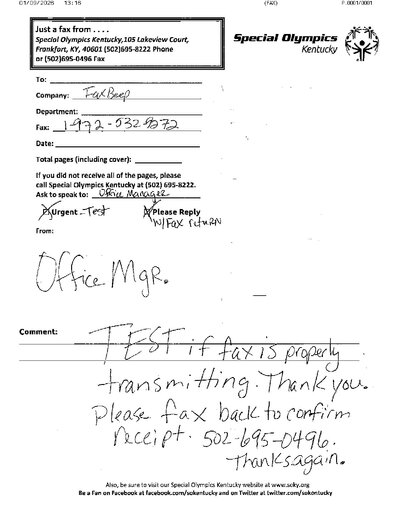 01/09/2026 13:16 (FAX) P.0001/0001
Just a fax from . . . .
Special Olympics Kentucky,105 Lakeview Court,
Frankfort, KY, 40601 (502)695-8222 Phone
or (502)695-0496 Fax
Special Olympics
Kentucky
To:
Company: FaxBeep
Department:
Fax: 1-972-532-9272
Date:
Total pages (including cover):
If you did not receive all of the pages, please
call Special Olympics Kentucky at (502) 695-8222.
Ask to speak to: Office Manager
Urgent - Test Please Reply
w/Fax return
From:
Office Mgr.
Comment: TEST if fax is properly
transmitting. Thank you.
Please fax back to confirm
receipt. 502-695-0496.
Thanks again.
Also, be sure to visit our Special Olympics Kentucky website at www.soky.org
Be a Fan on Facebook at facebook.com/sokentucky and on Twitter at twitter.com/sokentucky